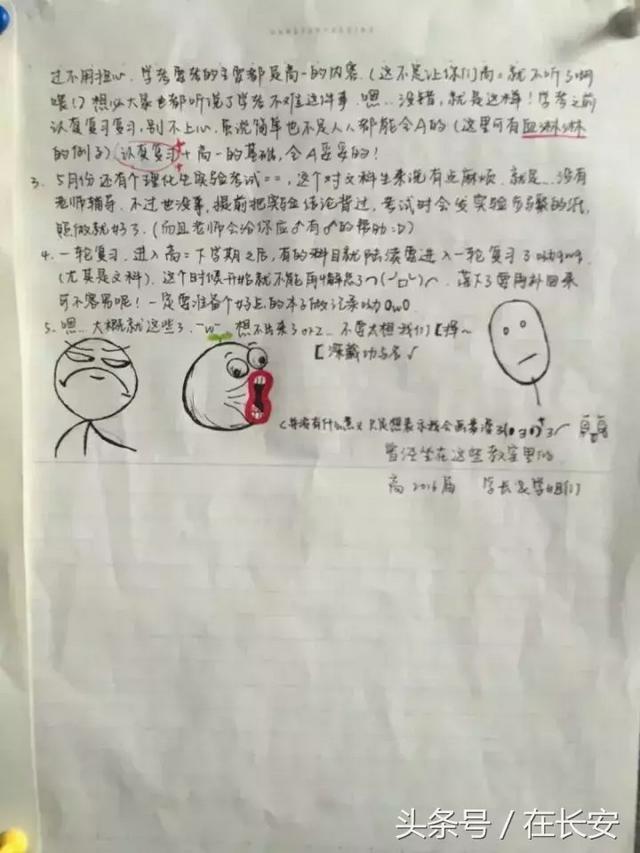 过不用担心，学考要考的主要都是高一的内容。（这不是让你们高二就不听了啊
喂！）想必大家也都听说了学考不难这件事，嗯...没错，就是这样！学考之前
认真复习复习，别不上心，虽说简单也不是人人都能全A的（这里可有血淋淋
的例子）认真复习+高一的基础，全A妥妥的！
3. 5月份还有个理化生实验考试==，这个对文科生来说有点麻烦，就是...没有
老师辅导，不过也没事，提前把实验结论背过，考试时会发实验步骤的纸，
照做就好了。（而且老师会给你应♂有♂的帮助:D）
4. 一轮复习，进入高二下学期之后，有的科目就陆续要进入一轮复习了
（尤其是文科），这个时候开始就不能再懈怠了 落下了要再补回来
可不容易呢！一定要准备个好点的本子做记录哟OwO
5. 嗯...大概就这些了，-w- 想不出来了orz... 不要太想我们【挥~
【深藏功与名√
（并没有什么意义 只是想表示我会画表情
曾经坐在这些教室里的
高2016届 学长&学姐们
头条号／在长安